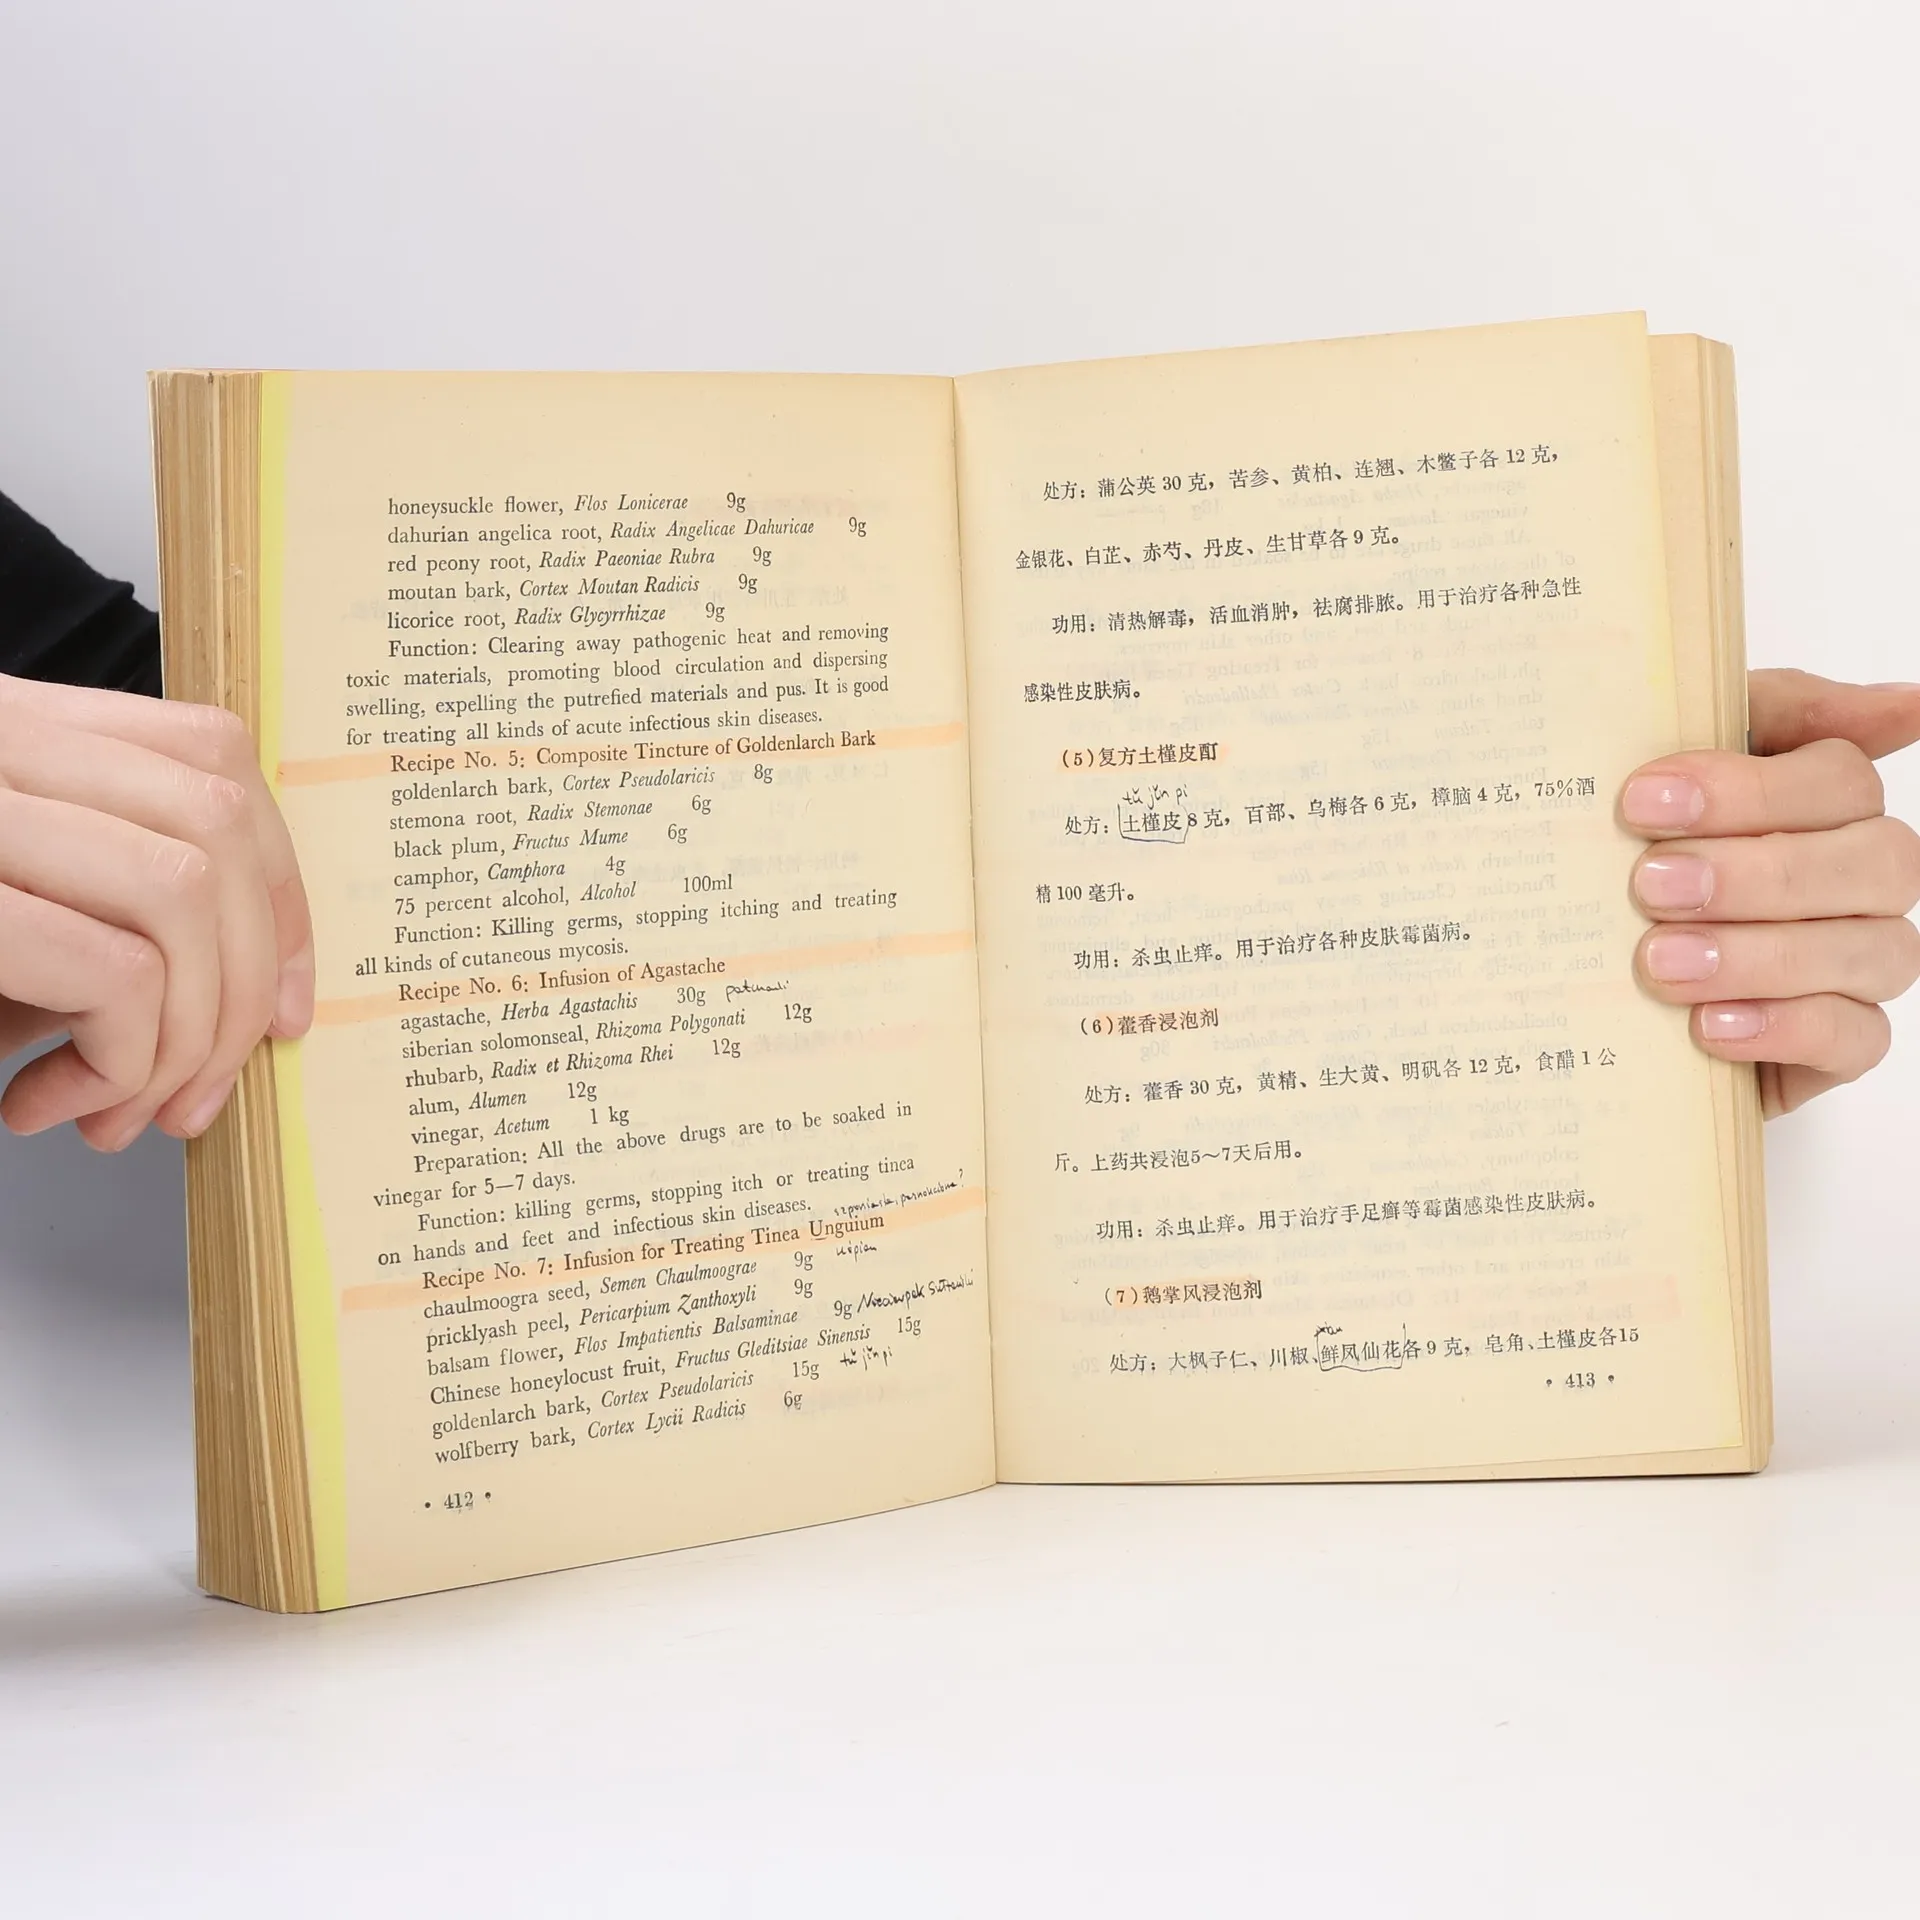 honeysuckle flower, Flos Lonicerae 9g
dahurian angelica root, Radix Angelicae Dahuricae 9g
red peony root, Radix Paeoniae Rubra 9g
moutan bark, Cortex Moutan Radicis 9g
licorice root, Radix Glycyrrhizae 9g
Function: Clearing away pathogenic heat and removing
toxic materials, promoting blood circulation and dispersing
swelling, expelling the putrefied materials and pus. It is good
for treating all kinds of acute infectious skin diseases.
Recipe No. 5: Composite Tincture of Goldenlarch Bark
goldenlarch bark, Cortex Pseudolaricis 8g
stemona root, Radix Stemonae 6g
black plum, Fructus Mume 6g
camphor, Camphora 4g
75 percent alcohol, Alcohol 100ml
Function: Killing germs, stopping itching and treating
all kinds of cutaneous mycosis.
Recipe No. 6: Infusion of Agastache
agastache, Herba Agastachis 30g
siberian solomonseal, Rhizoma Polygonati 12g
rhubarb, Radix et Rhizoma Rhei 12g
alum, Alumen 12g
vinegar, Acetum 1 kg
Preparation: All the above drugs are to be soaked in
vinegar for 5—7 days.
Function: killing germs, stopping itch or treating tinea
on hands and feet and infectious skin diseases.
Recipe No. 7: Infusion for Treating Tinea Unguium
chaulmoogra seed, Semen Chaulmoograe 9g
pricklyash peel, Pericarpium Zanthoxyli 9g
balsam flower, Flos Impatientis Balsaminae 9g
Chinese honeylocust fruit, Fructus Gleditsiae Sinensis 15g
goldenlarch bark, Cortex Pseudolaricis 15g tǔ jǐn pí
wolfberry bark, Cortex Lycii Radicis 6g
• 412 •
处方：蒲公英 30 克，苦参、黄柏、连翘、木鳖子各 12 克，
金银花、白芷、赤芍、丹皮、生甘草各 9 克。
功用：清热解毒，活血消肿，祛腐排脓。用于治疗各种急性
感染性皮肤病。
（5）复方土槿皮酊
tǔ jǐn pí
处方：土槿皮 8 克，百部、乌梅各 6 克，樟脑 4 克，75％酒
精 100 毫升。
功用：杀虫止痒。用于治疗各种皮肤霉菌病。
（6）藿香浸泡剂
处方：藿香 30 克，黄精、生大黄、明矾各 12 克，食醋 1 公
斤。上药共浸泡5～7天后用。
功用：杀虫止痒。用于治疗手足癣等霉菌感染性皮肤病。
（7）鹅掌风浸泡剂
处方：大枫子仁、川椒、鲜凤仙花各 9 克，皂角、土槿皮各15
• 413 •